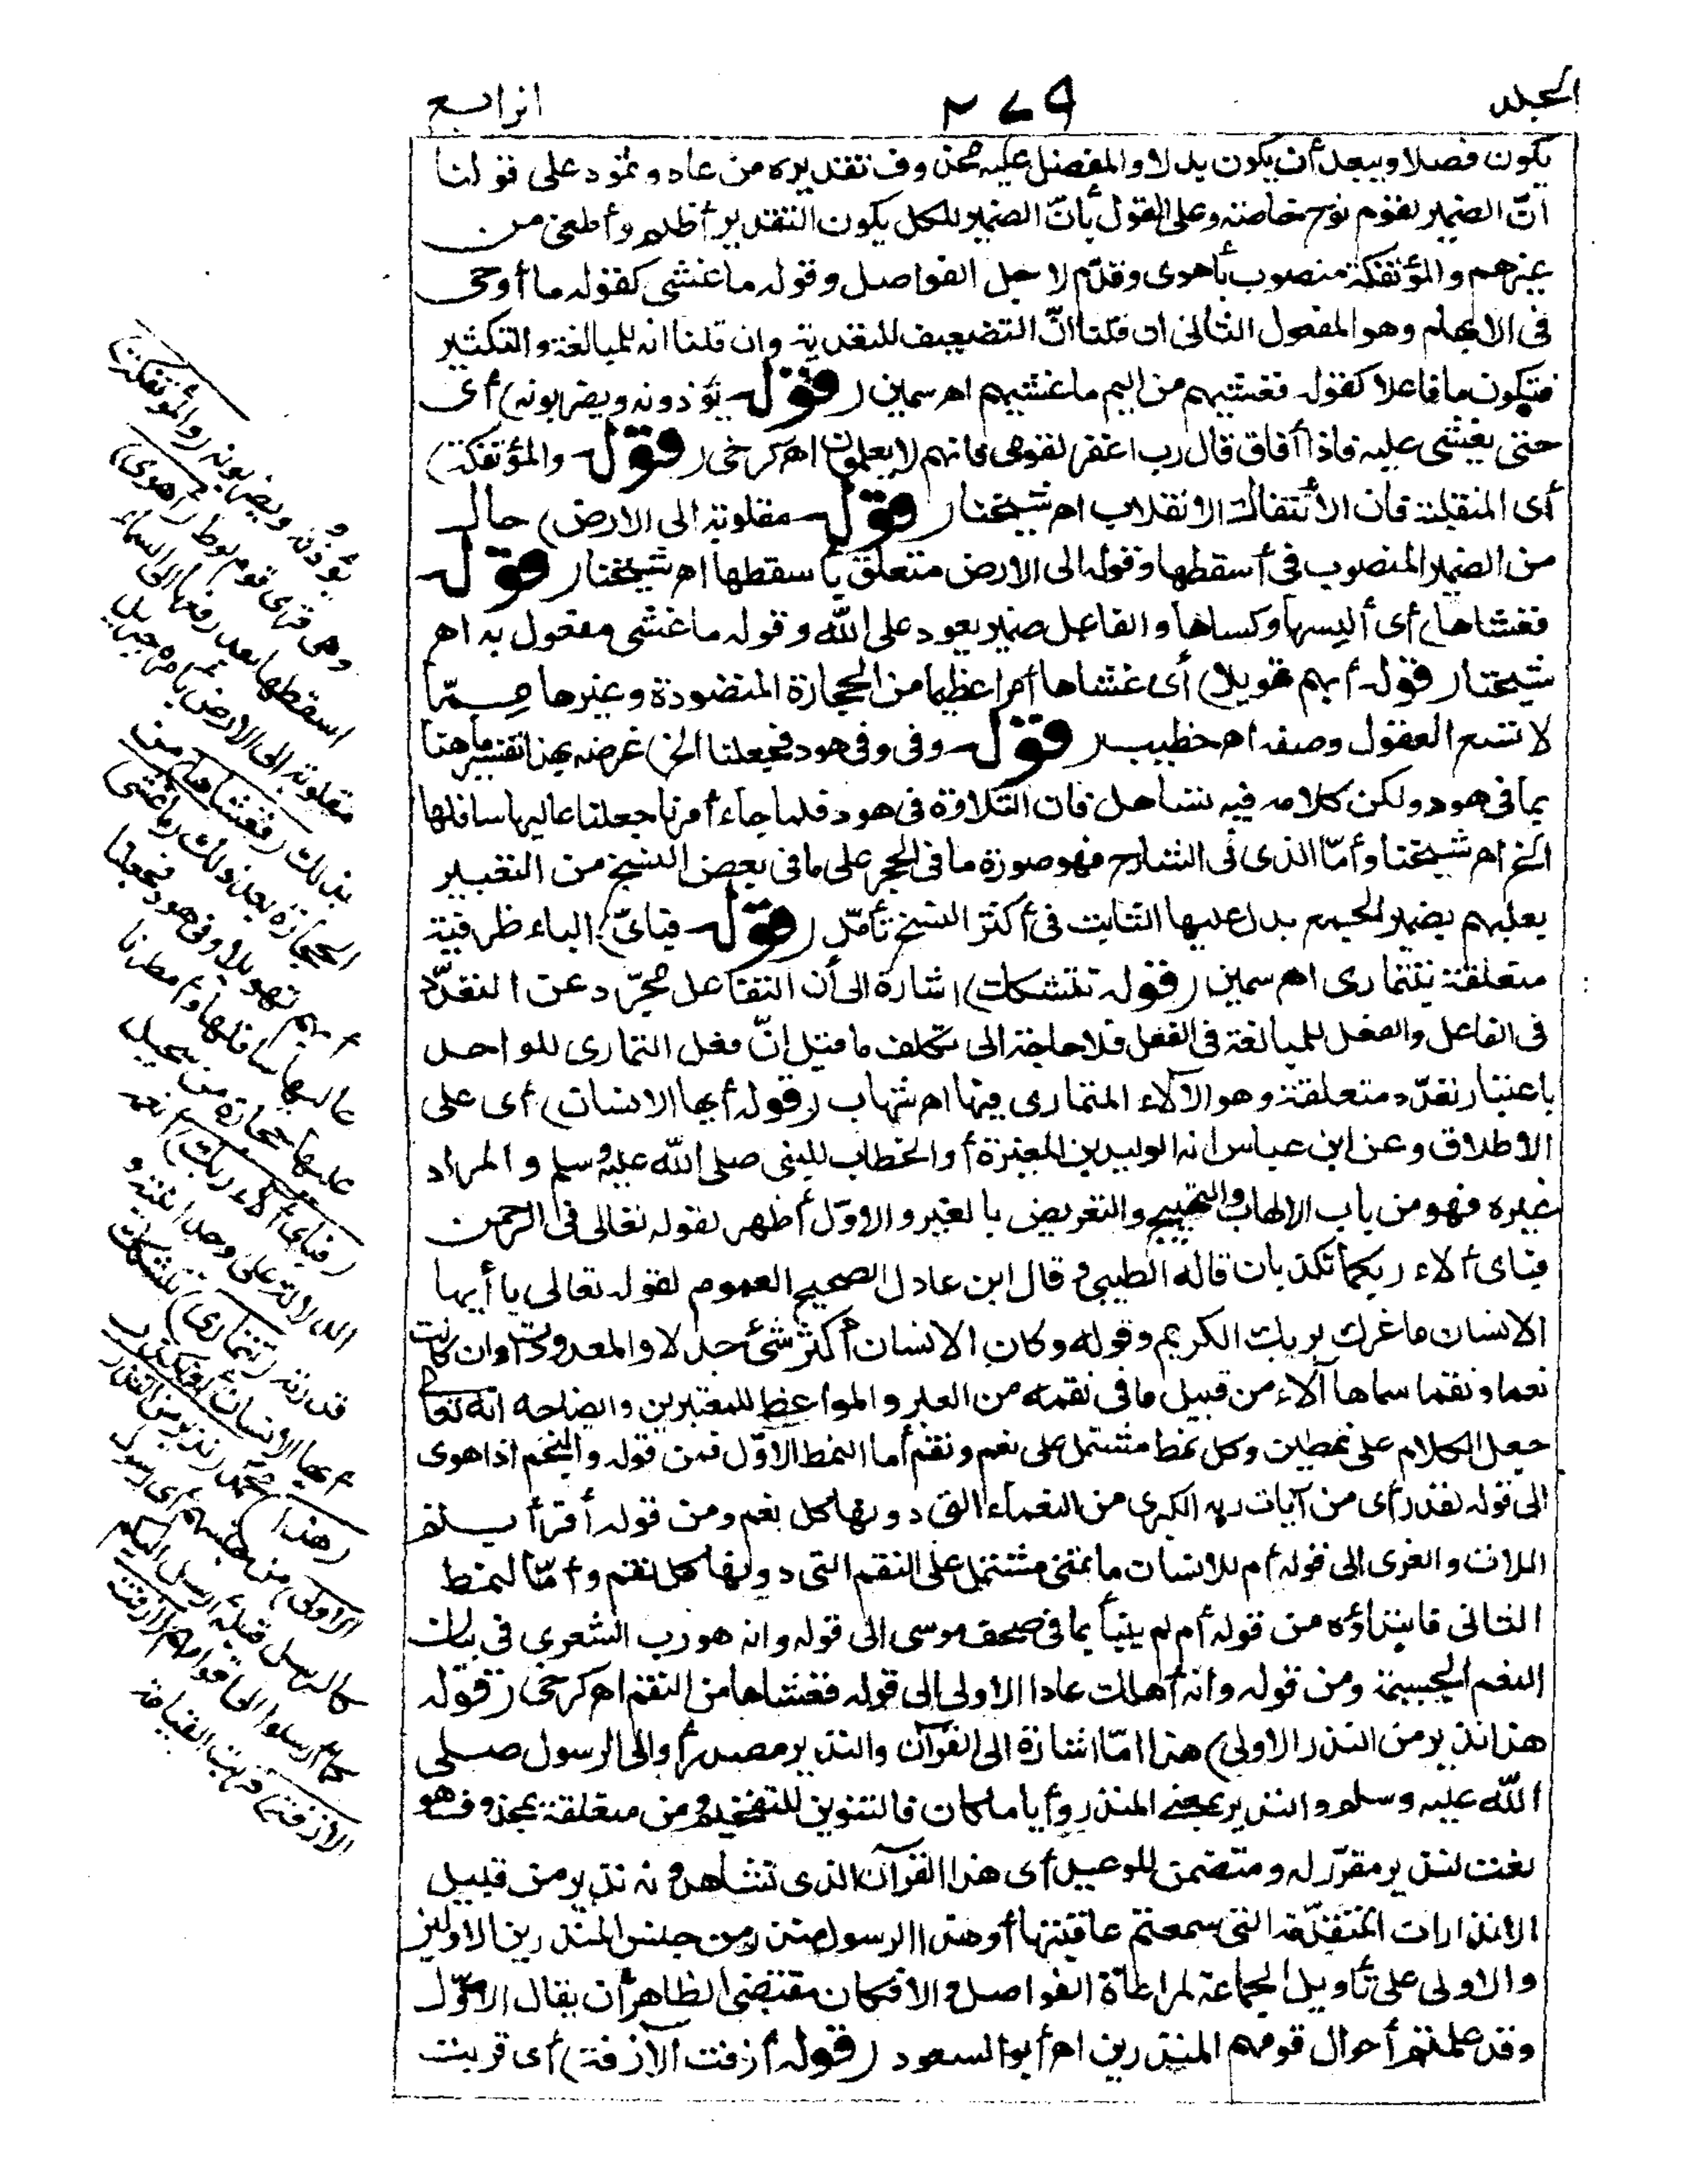 المجلد ٢٧٩ الرابع
يكون فصلا ويبعد أن يكون بدلا والمفضل عليه محذوف تقديره من عاد وثمود على قولنا
انّ الضمير لقوم نوح خاصة وعلى القول بأنّ الضمير للكل يكون التقدير أظلم وأطغى من
غيرهم والمؤتفكة منصوب بأهوى وقدّم لاجل الفواصل وقوله ما غشى كقوله ما أوحى
فى الابهام وهو المفعول الثانى ان قلنا انّ التضعيف للتعدية وان قلنا انه للمبالغة والتكثير
فتكون ما فاعلا كقوله فغشيهم من اليم ما غشيهم اهـ سمين (قوله يؤذونه ويضربونه) أى
حتى يغشى عليه فاذا أفاق قال رب اغفر لقومى فانهم لا يعلمون اهـ كرخى (قوله والمؤتفكة)
أى المنقلبة فان الائتفاك الانقلاب اهـ شيخنا (قوله مقلوبة الى الارض) حال
من الضمير المنصوب فى أسقطها وقوله الى الارض متعلق بأسقطها اهـ شيخنا (قوله
فغشاها) أى ألبسها وكساها والفاعل ضمير يعود على الله وقوله ما غشى مفعول به اهـ
شيخنا (قوله أبهم تهويلا) أى غشاها أمرا عظيما من الحجارة المنضودة وغيرها ممّا
لا تسع العقول وصفه اهـ خطيب (قوله وفى هود فجعلنا الخ) غرضه بهذا تفسير ما هنا
بما فى هود ولكن كلامه فيه تساهل فان التلاوة فى هود فلما جاء أمرنا جعلنا عاليها سافلها
الخ اهـ شيخنا وأمّا الذى فى الشارح فهو صورة ما فى الحجر على ما فى بعض النسخ من التعبير
بعليهم بضمير الجمع بدل عليها الثابت فى أكثر النسخ تأمّل (قوله فبأىّ) الباء ظرفية
متعلقة بتتمارى اهـ سمين (قوله تتشكك) اشارة الى أن التفاعل مجرّد عن التعدّد
فى الفاعل والفعل للمبالغة فى الفعل فلا حاجة الى تكلف ما قيل إنّ فعل التمارى للواحد
باعتبار تعدّد متعلقة وهو الآلاء المتمارى فيها اهـ شهاب (قوله أيها الانسان) أى على
الاطلاق وعن ابن عباس انه الوليد بن المغيرة أو الخطاب للنبى صلى الله عليه وسلم والمراد
غيره فهو من باب الالهاب والتهييج والتعريض بالغير والاوّل أظهر لقوله تعالى فى الرحمن
فبأى آلاء ربكما تكذبان قاله الطيبى وقال ابن عادل الصحيح العموم لقوله تعالى يا أيها
الانسان ما غرك بربك الكريم وقوله وكان الانسان أكثر شئ جدلا والمعدودات وان كانت
نعما ونقما سماها آلاء من قبيل ما فى نقمه من العبر والمواعظ للمعتبرين وايضاحه انه تعالى
جعل الكلام على نمطين وكل نمط مشتمل على نعم ونقم أما النمط الاوّل فمن قوله والنجم اذا هوى
الى قوله لقد رأى من آيات ربه الكبرى من النعماء التى دونها كل نعم ومن قوله أفرأيتم
اللات والعزى الى قوله أم للانسان ما تمنى مشتمل على النقم التى دونها كل نقم وأمّا النمط
الثانى فابتداؤه من قوله أم لم ينبأ بما فى صحف موسى الى قوله وانه هو رب الشعرى فى بيان
النعم الجسيمة ومن قوله وانه أهلك عادا الاولى الى قوله فغشاها من النقم اهـ كرخى (قوله
هذا نذير من النذر الاولى) هذا امّا اشارة الى القرآن والنذير مصدر أو الى الرسول صلى
الله عليه وسلم والنذير بمعنى المنذر وأيا ما كان فالتنوين للتفخيم ومن متعلقة بمحذوف هو
نعت لنذير مقرّر له ومتضمن للوعيد أى هذا القرآن الذى تشاهدونه نذير من قبيل
الانذارات المتقدّمة التى سمعتم عاقبتها أو هذا الرسول منذر من جنس المنذرين الاولين
والاولى على تأويل الجماعة لمراعاة الفواصل والا فكان مقتضى الظاهر أن يقال الاوّل
وقد علمتم أحوال قومهم المنذرين اهـ أبو السعود (قوله أزفت الآزفة) أى قربت
يؤذونه ويضربونه (والمؤتفكة)
وهى قرى قوم لوط (أهوى)
اسقطها بعد رفعها الى السماء
مقلوبة الى الارض بأمره جبريل
بذلك (فغشاها) من
الحجارة بعد ذلك (ما غشى)
أبهم تهويلا وفى هود فجعلنا
عاليها سافلها وأمطرنا
عليها حجارة من سجيل
(فبأى آلاء ربك) أنعمه
الدالة على وحدانيته و
قدرته (تتمارى) تتشكك
أيها الانسان أو تكذب
(هذا) محمد (نذير من النذر
الاولى) من جنسهم أى رسول
كالرسل قبله أرسل اليكم
كما أرسلوا الى أقوامهم (أزفت
الآزفة) قربت القيامة